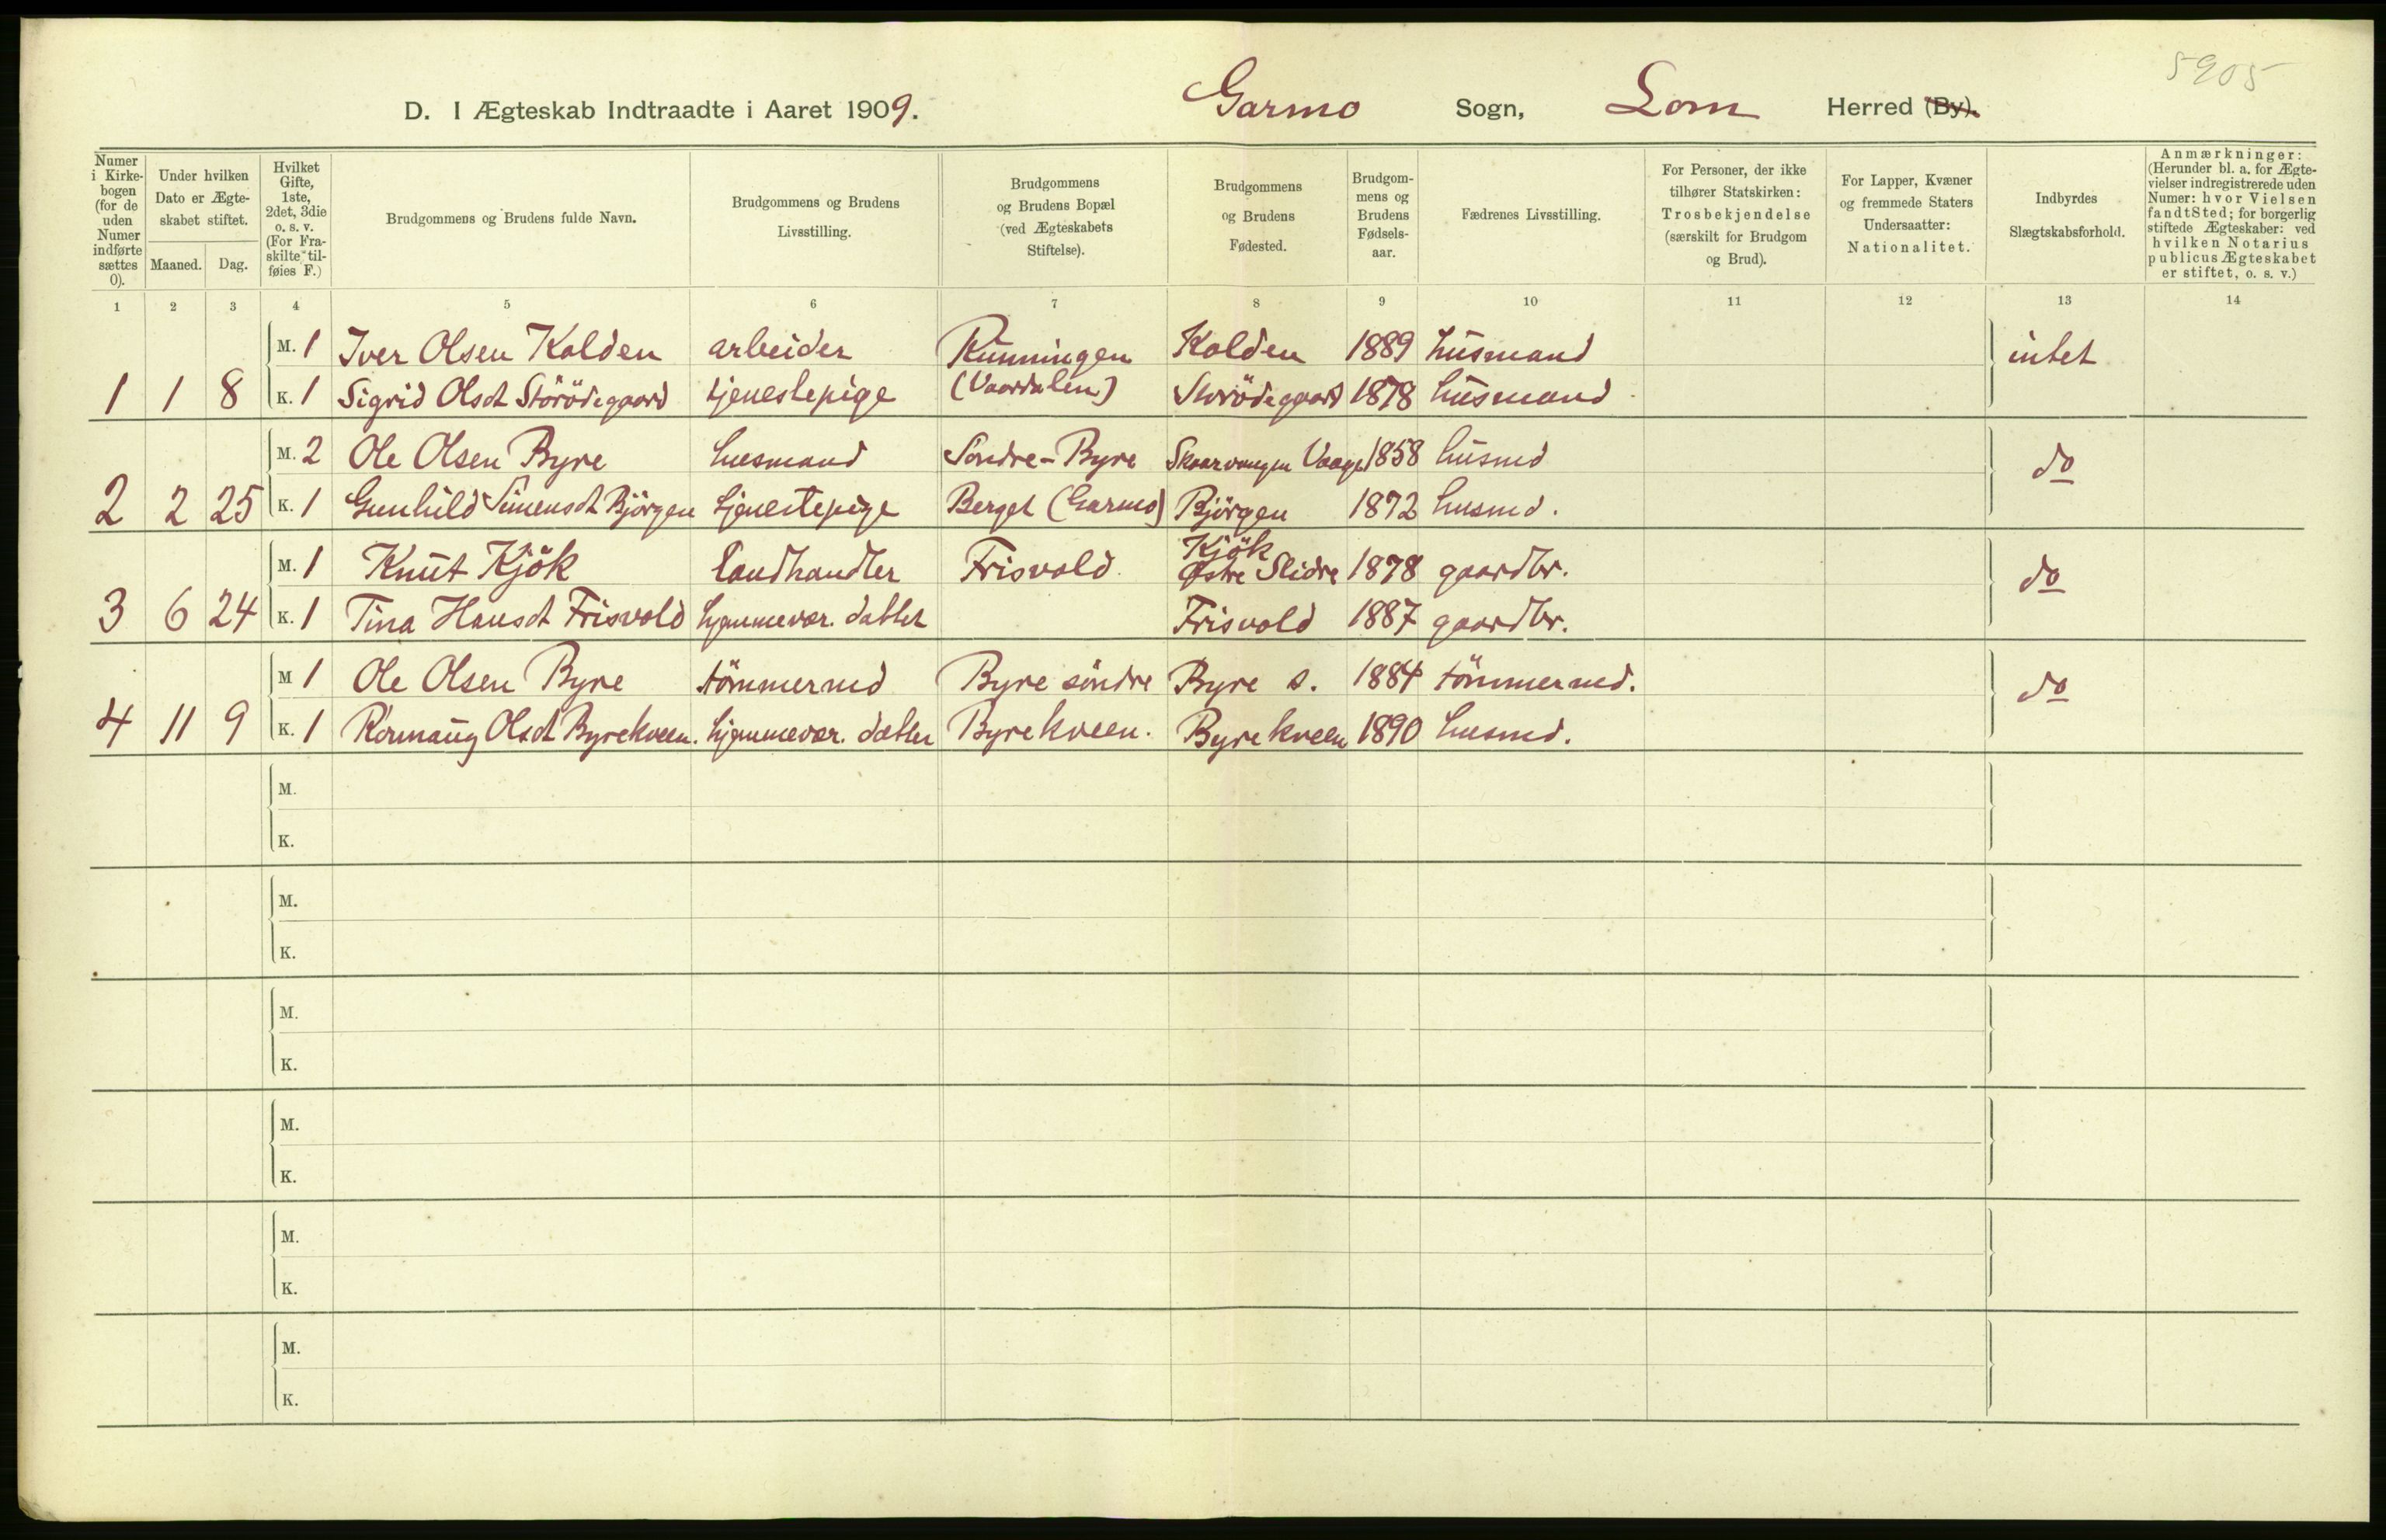 5905
D. I Ægteskab Indtraadte i Aaret 1909. Garmo Sogn, Lom Herred (By).
Numer i Kirke-bogen (for de uden Numer indførte sættes 0).
Under hvilken Dato er Ægte-skabet stiftet.
Maaned. Dag.
Hvilket Gifte, 1ste, 2det, 3die o. s. v. (For Fra-skilte til-føies F.)
Brudgommens og Brudens fulde Navn.
Brudgommens og Brudens Livsstilling.
Brudgommens og Brudens Bopæl (ved Ægteskabets Stiftelse).
Brudgommens og Brudens Fødested.
Brudgom-mens og Brudens Fødsels-aar.
Fædrenes Livsstilling.
For Personer, der ikke tilhører Statskirken: Trosbekjendelse (særskilt for Brudgom og Brud).
For Lapper, Kvæner og fremmede Staters Undersaatter: Nationalitet.
Indbyrdes Slægtskabsforhold.
Anmærkninger: (Herunder bl. a. for Ægte-vielser indregistrerede uden Numer: hvor Vielsen fandt Sted; for borgerlig stiftede Ægteskaber: ved hvilken Notarius publicus Ægteskabet er stiftet, o. s. v.)
1 2 3 4 5 6 7 8 9 10 11 12 13 14
M. 1 Iver Olsen Kolden arbeider Runningen Kolden 1889 husmand intet
1 1 8 K. 1 Sigrid Olsdt Storödegaard tjenestepige (Vaardalen) Storödegaard 1878 husmand
M. 2 Ole Olsen Byre husmand Söndre-Byre Skaarvangen Vaage 1858 husmd do
2 2 25 K. 1 Gunhild Simensdt Björgen tjenestepige Berget (Garmo) Björgen 1872 husmd.
M. 1 Knut Kjök landhandler Frisvold Kjök Østre Slidre 1878 gaardbr. do
3 6 24 K. 1 Tina Hansdt Frisvold hjemmevær. datter Frisvold 1887 gaardbr.
M 1 Ole Olsen Byre tömmermd Byre söndre Byre s. 1884 tömmermd. do
4 11 9 K. 1 Rönnaug Olsdt Byrekveen. hjemmevær. datter Byrekveen. Byrekveen 1890 husmd.
M.
K.
M.
K.
M.
K.
M.
K.
M.
K.
M.
K.